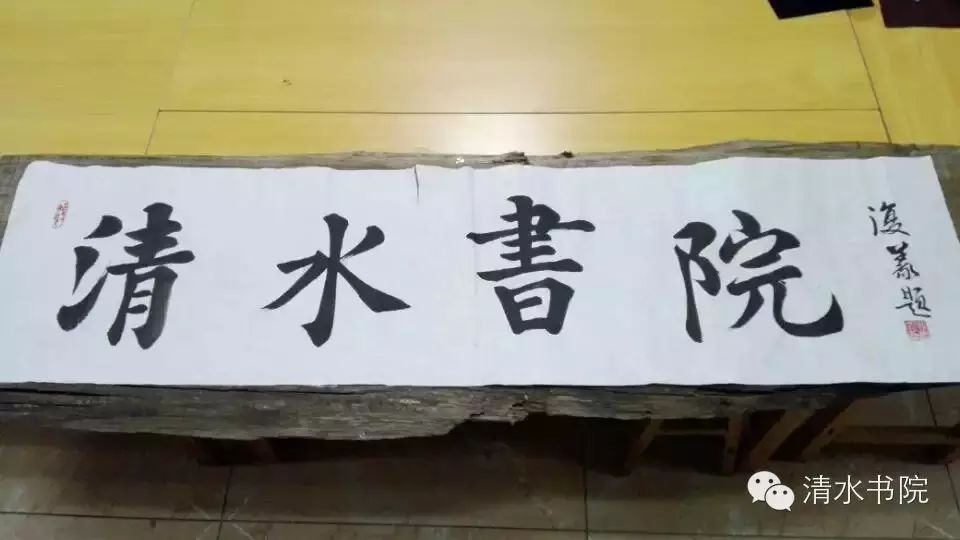 清水書院
復義題
清水书院